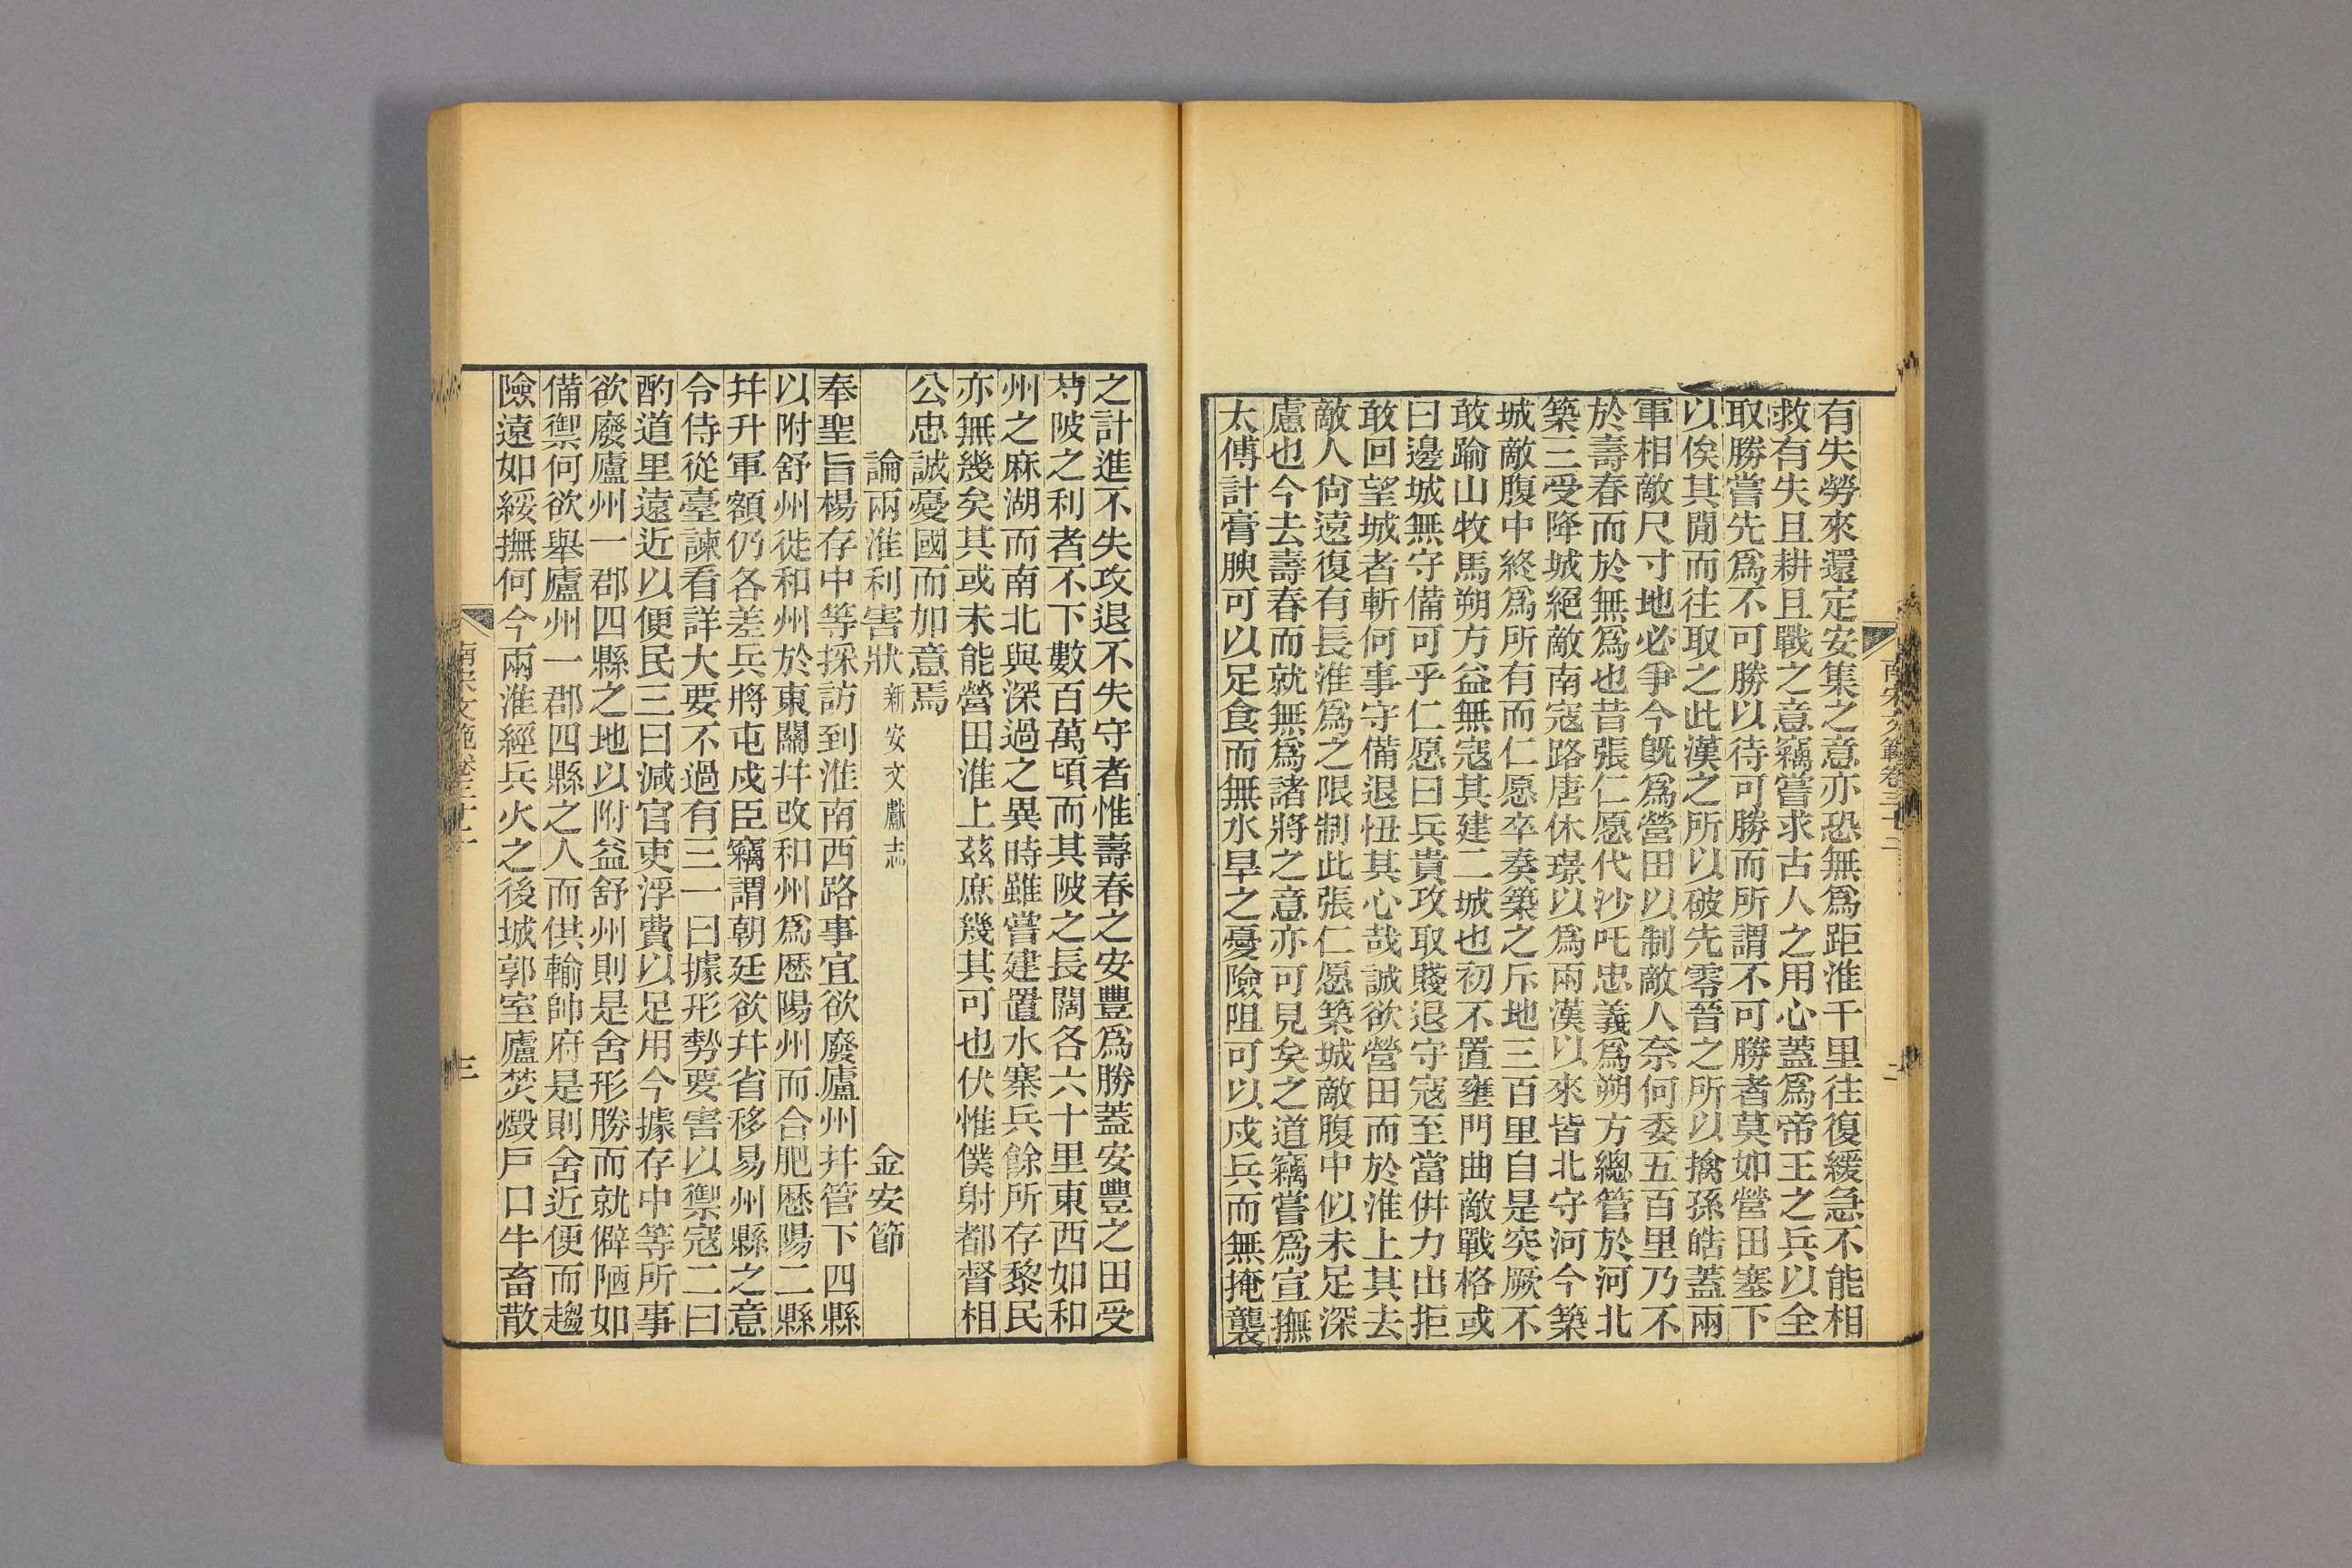 有失勞來還定安集之意亦恐無爲距淮千里往復緩急不能相
救有失且耕且戰之意竊嘗求古人之用心蓋爲帝王之兵以全
取勝嘗先爲不可勝以待可勝而所謂不可勝者莫如營田塞下
以俟其閒而往取之此漢之所以破先零晉之所以擒孫皓蓋兩
軍相敵尺寸地必爭今旣爲營田以制敵人奈何委五百里乃不
於壽春而於無爲也昔張仁愿代沙吒忠義爲朔方總管於河北
築三受降城絕敵南寇路唐休璟以爲兩漢以來皆北守河今築
城敵腹中終爲所有而仁愿卒奏築之斥地三百里自是突厥不
敢踰山牧馬朔方益無寇其建二城也初不置壅門曲敵戰格或
曰邊城無守備可乎仁愿曰兵貴攻取賤退守寇至當倂力出拒
敢回望城者斬何事守備退忸其心哉誠欲營田而於淮上其去
敵人尙遠復有長淮爲之限制此張仁愿築城敵腹中似未足深
慮也今去壽春而就無爲諸將之意亦可見矣之道竊嘗爲宣撫
太傅計膏腴可以足食而無水旱之憂險阻可以戍兵而無掩襲
南宋文範卷三十二
二
之計進不失攻退不失守者惟壽春之安豐爲勝蓋安豐之田受
芍陂之利者不下數百萬頃而其陂之長闊各六十里東西如和
州之麻湖而南北與深過之異時雖嘗建置水寨兵餘所存黎民
亦無幾矣其或未能營田淮上茲庶幾其可也伏惟僕射都督相
公忠誠憂國而加意焉
論兩淮利害狀 新安文獻志 金安節
奉聖旨楊存中等採訪到淮南西路事宜欲廢廬州幷管下四縣
以附舒州徙和州於東關幷改和州爲歷陽州而合肥歷陽二縣
幷升軍額仍各差兵將屯戍臣竊謂朝廷欲幷省移易州縣之意
令侍從臺諫看詳大要不過有三一曰據形勢要害以禦寇二曰
酌道里遠近以便民三曰減官吏浮費以足用今據存中等所事
欲廢廬州一郡四縣之地以附益舒州則是舍形勝而就僻陋如
備禦何欲舉廬州一郡四縣之人而供輸帥府是則舍近便而趨
險遠如綏撫何今兩淮經兵火之後城郭室廬焚燬戶口牛畜散
南宋文範卷三十二
三